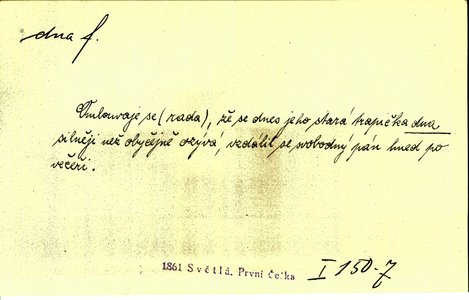 dna f.
Omlouvaje se (rada), že se dnes jeho stará trapička dna
silněji než obyčejně ozývá, vzdálil se svobodný pán hned po
večeři.
1861 Světlá, První Češka I 150-7